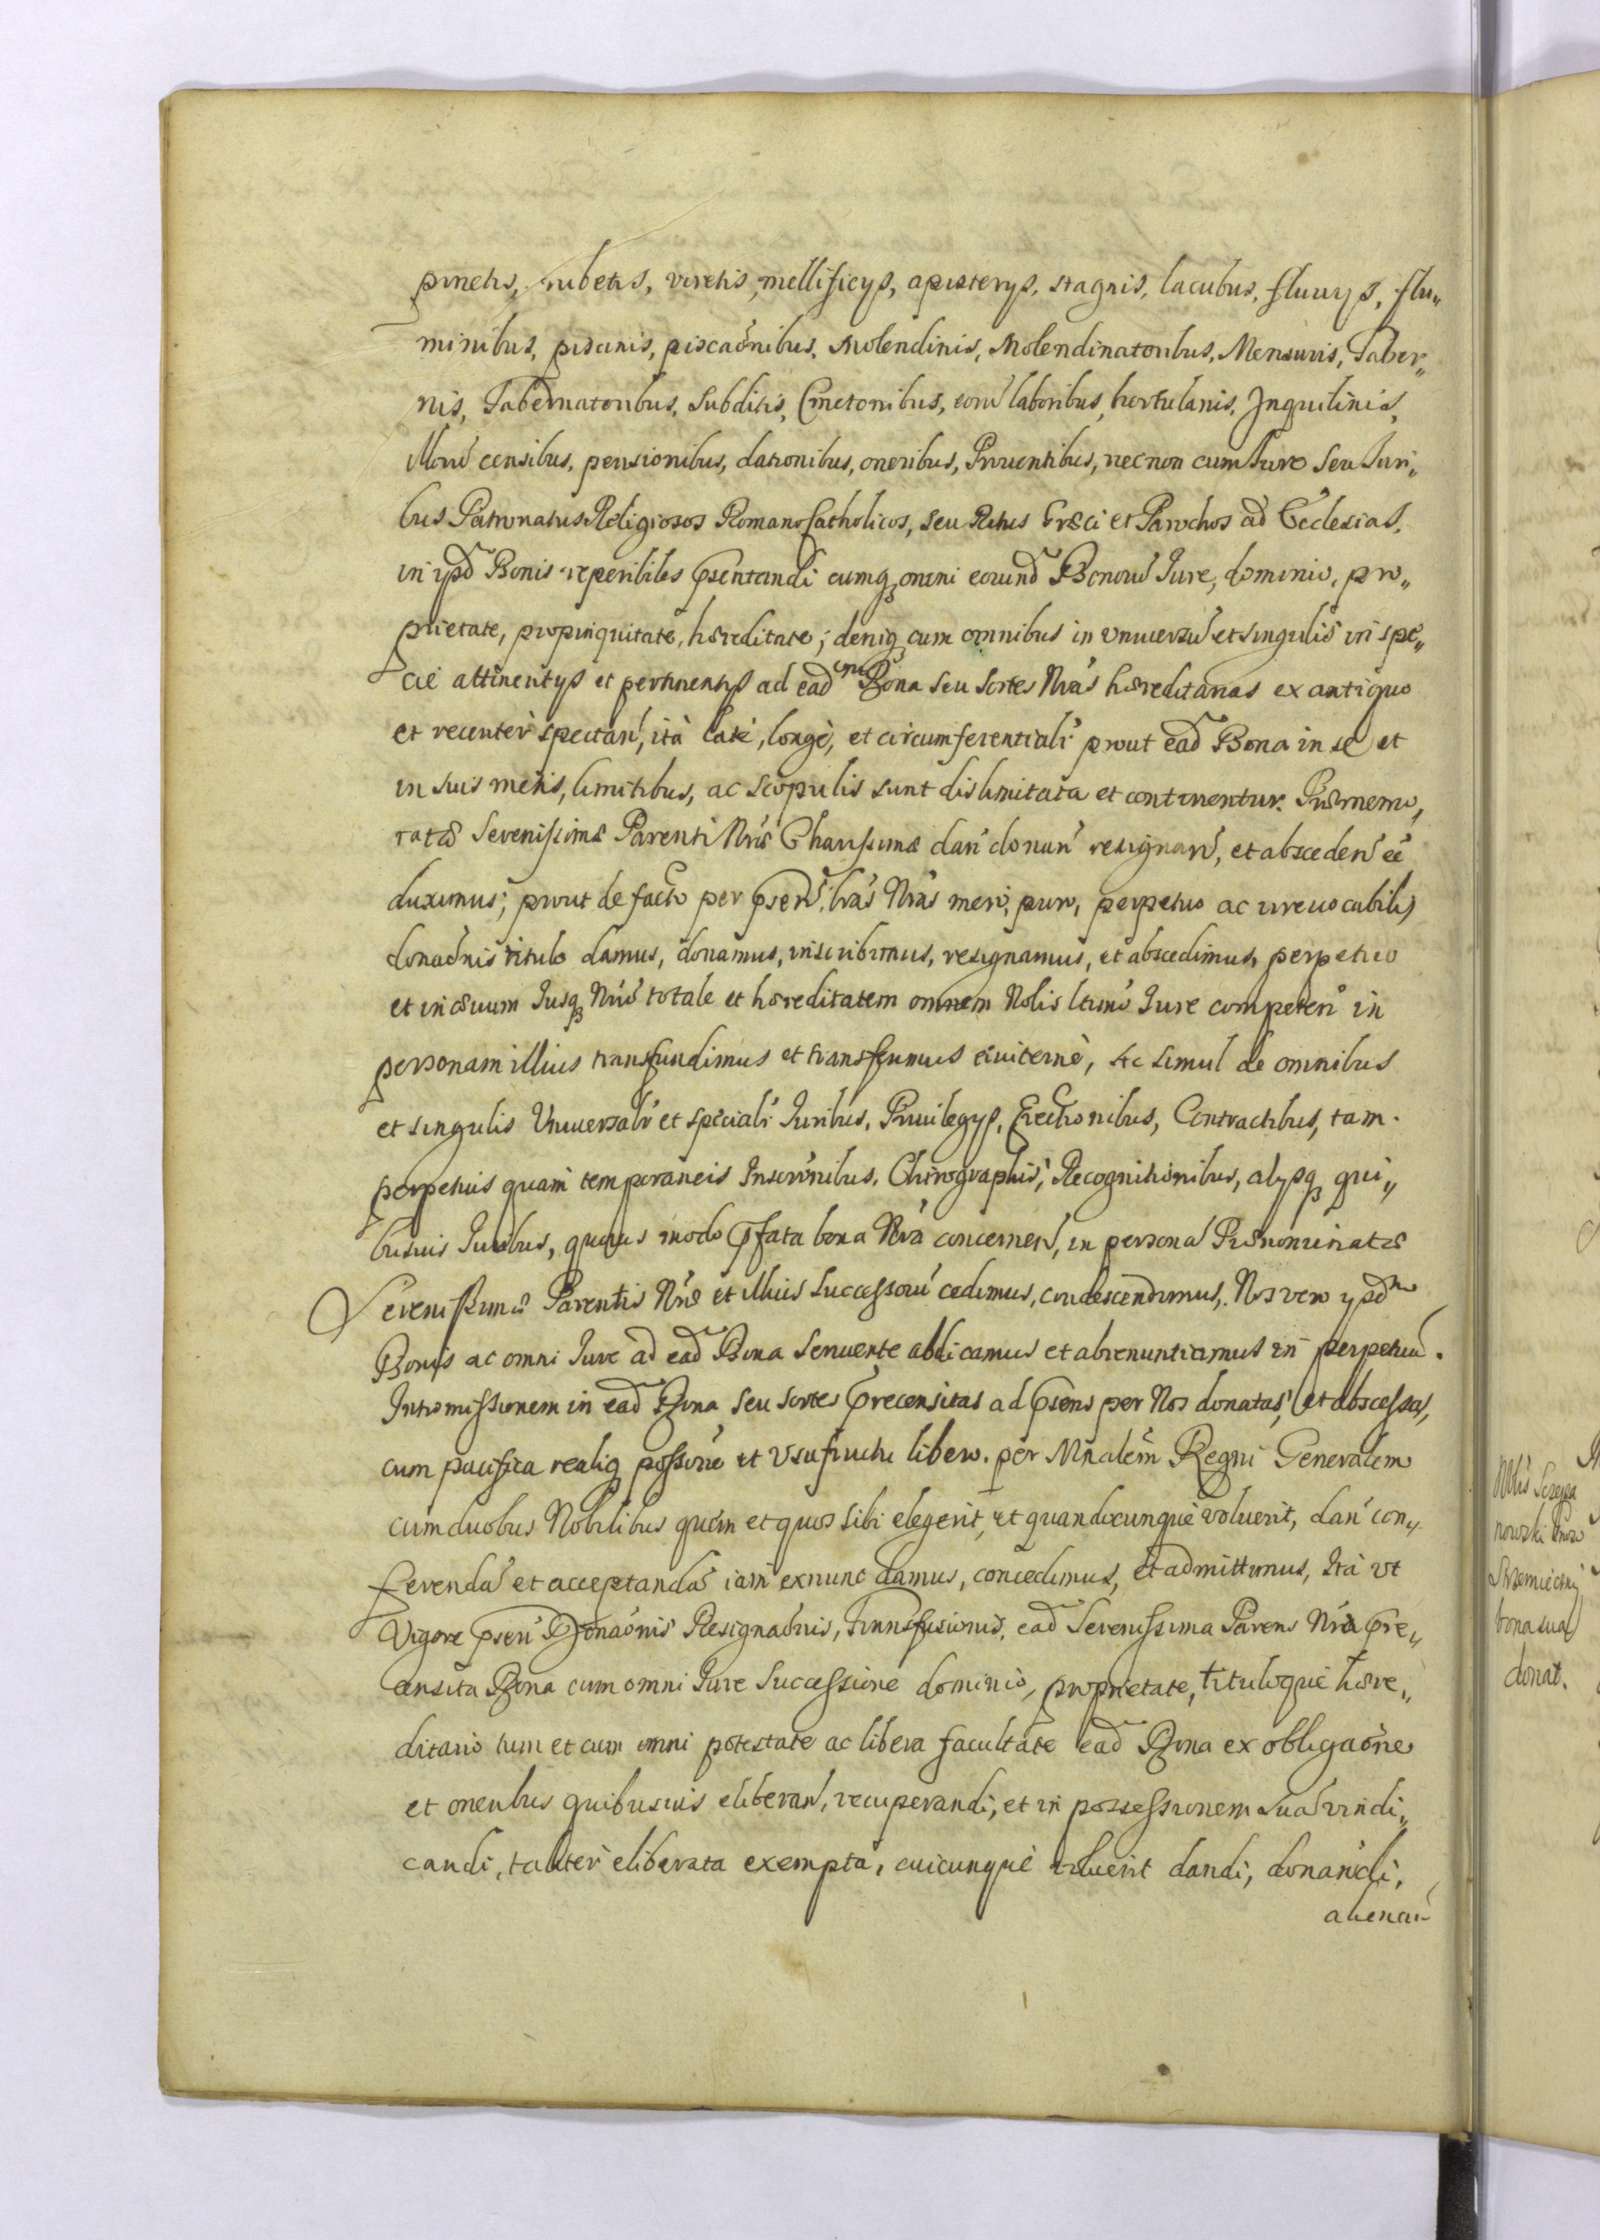 pinetis, rubetis, viretis, mellificys, apisterys, stagnis, lacubus, fluuys, flu„
minibus, piscinis, piscaõnibus, Molendinis, Molendinatoribus, Mensuris, Taber„
nis, Tabernatoribus, Subditis, Cmetonibus, eorũ laboribus, hortulanis, Inquilinis,
illorũ censibus, pensionibus, dationibus, oneribus, Prouentibus, necnon cum Jure Seu Juri„
bus Patronatus Religiosos Romano Catholicos, seu Ritus Græci et Parochos ad Ecclesias,
in ypd Bonis reperibiles pñsentandi cumq₃ omni eorund Bonorũ Jure, dominio, pro„
prietate, propinquitate, hæreditate; deniq₃ cum omnibus in vniuersũ et singulis in spe„
cie attinentys et pertinentys ad ead Bona seu Sortes Nr̃as hæreditarias ex antiquo
et recenter spectan̄, ità latè, longè, et circumferentialr̃ prout ead Bona in se et
in suis metis, limitibus, ac scopulis sunt dislimitata et continentur. Præmemo„
ratæ Serenissimæ Parenti Nr̃æ Charissimæ dan̄ donan̄ resignan̄, et absceden̄ ẽe
duximus; prout de facto per pñsen̄ lr̃as Nr̃as mero, puro, perpetuo ac irreuocabili
donaõnis titulo damus, donamus, inscribimus, resignamus, et abscedimus, perpetuo
et in æuum Jusq₃ Nr̃ũ totale et hæreditatem omnem Nobis ltimo Jure competen̄ in
personam illius transfundimus et transferimus æuiternè, Ac simul de omnibus
et singulis Vniuersalr̃ et specialr̃ Juribus, Priuilegys, Erectionibus, Contractibus, tam
perpetuis quam temporaneis Inscriõnibus, Chirographis, Recognitionibus, alysq₃ qui„
busuis Juribus, quouis modo pfata bona Nr̃a concernen̄, in personã Prænominatæ
Serenissimæ Parentis Nr̃æ et illius Successorũ cedimus, condescendimus, Nos vero ypd
Bonis ac omni Jure ad ead Bona Seruiente abdicamus et abrenuntiamus in perpetuũ.
Intromissionem in ead Bona seu Sortes precensitas ad pñsens per Nos donatas, et abscessas,
cum pacifica realiq₃ possõne et Vsufructu libero. per Mnalem Regni Generalem
cum duobus Nobilibus quem et quos sibi elegerit, et quandocunque voluerit, dan̄ con„
ferendã et acceptandã iam exnunc damus, concedimus, et admittimus, Ità vt
Vigore pñsen̄ Donaõnis Resignaõnis, Transfusionis, ead Serenissima Parens Nr̃a pre„
censita Bona cum omni Jure Successione dominio, proprietate, tituloque hære„
ditario tum et cum omni potestate ac libera facultate ead Bona ex obligaõne
et oneribus quibusuis eliberan̄, recuperandi, et in possessionem suã vindi„
candi, taliter eliberata exempta, cuicunque voluerit dandi, donandi,
alienan̄
Nblis
nowski
bona sua
donat.